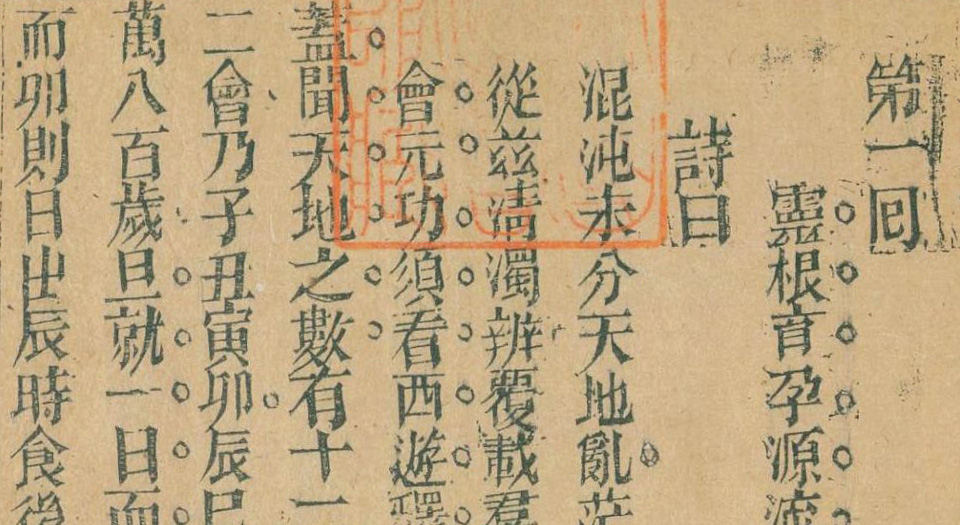 第一回
靈根育孕源流
詩曰
混沌未分天地亂茫
從兹清濁辨覆載羣
會元功須看西遊釋
蓋聞天地之數有十一
二會乃子丑寅卯辰巳
萬八百歲旦就一日而
而卯則日出辰時食後